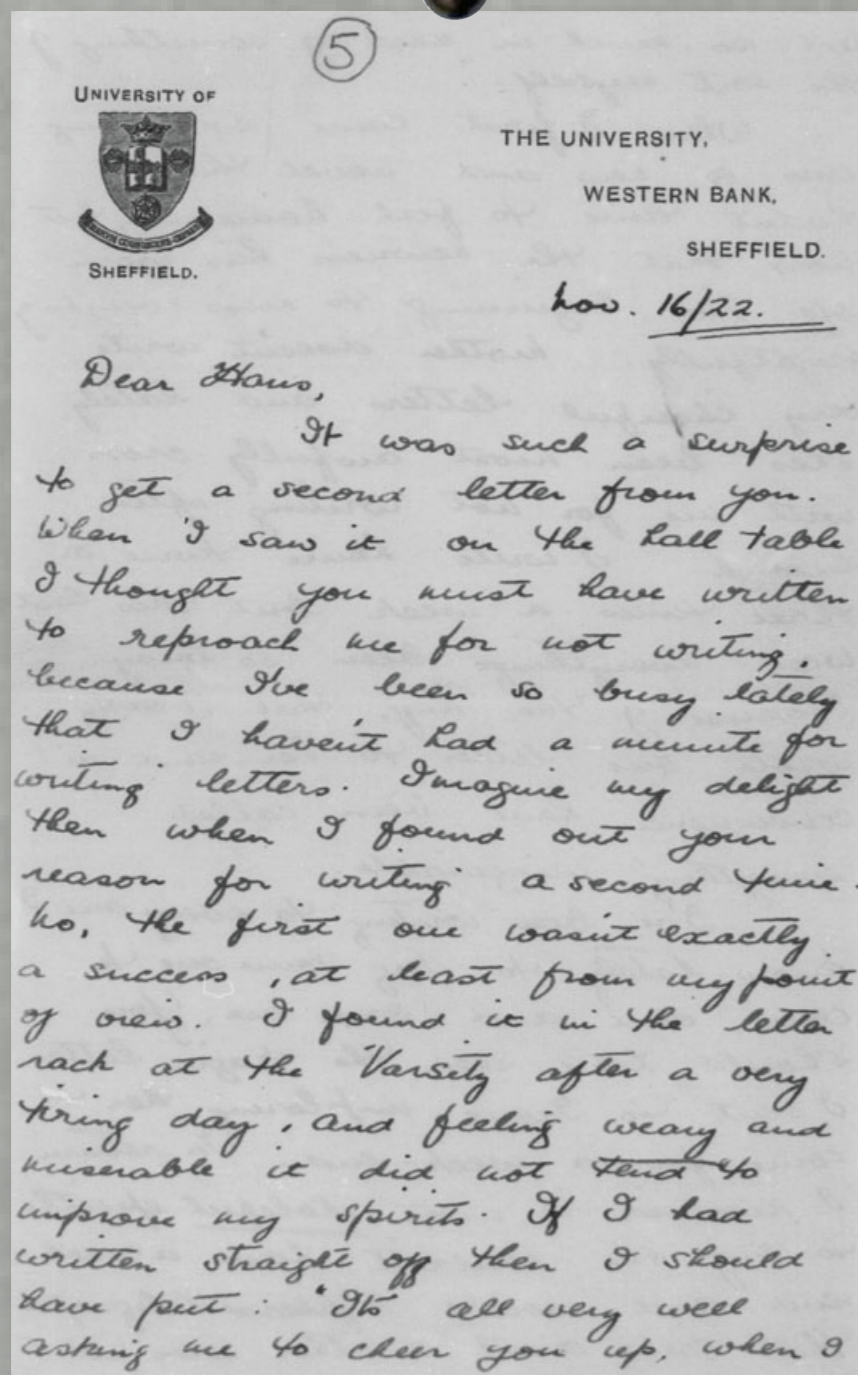 5
UNIVERSITY OF
SHEFFIELD.
THE UNIVERSITY,
WESTERN BANK,
SHEFFIELD.
Nov. 16/22.
Dear Hans,
It was such a surprise
to get a second letter from you.
When I saw it on the hall table
I thought you must have written
to reproach me for not writing,
because I've been so busy lately
that I haven't had a minute for
writing letters. Imagine my delight
then when I found out your
reason for writing a second time.
No, the first one wasn't exactly
a success, at least from my point
of view. I found it in the letter
rack at the 'Varsity after a very
tiring day, and feeling weary and
miserable it did not tend to
improve my spirits. If I had
written straight off then I should
have put: "It's all very well
asking me to cheer you up, when I